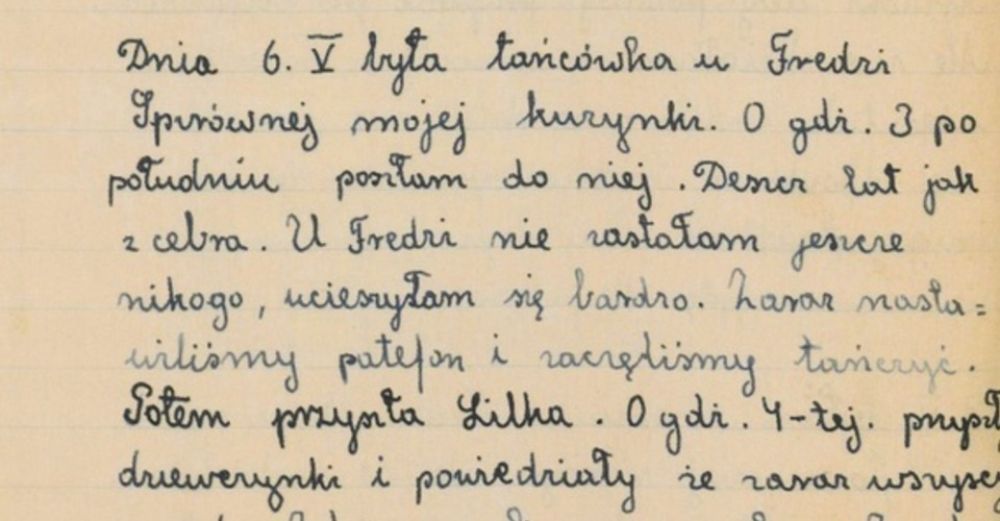 Dnia 6. V była tańcówka u Fredzi
Spirównej mojej kuzynki. O gdz. 3 po
południu poszłam do niej. Deszcz lał jak
z cebra. U Fredzi nie zastałam jeszcze
nikogo, ucieszyłam się bardzo. Zaraz nasta=
wiliśmy patefon i zaczęliśmy tańczyć.
Potem przyszła Lilka. O gdz. 4-tej. przyszł
dziewczynki i powiedziały że zaraz wszyscy